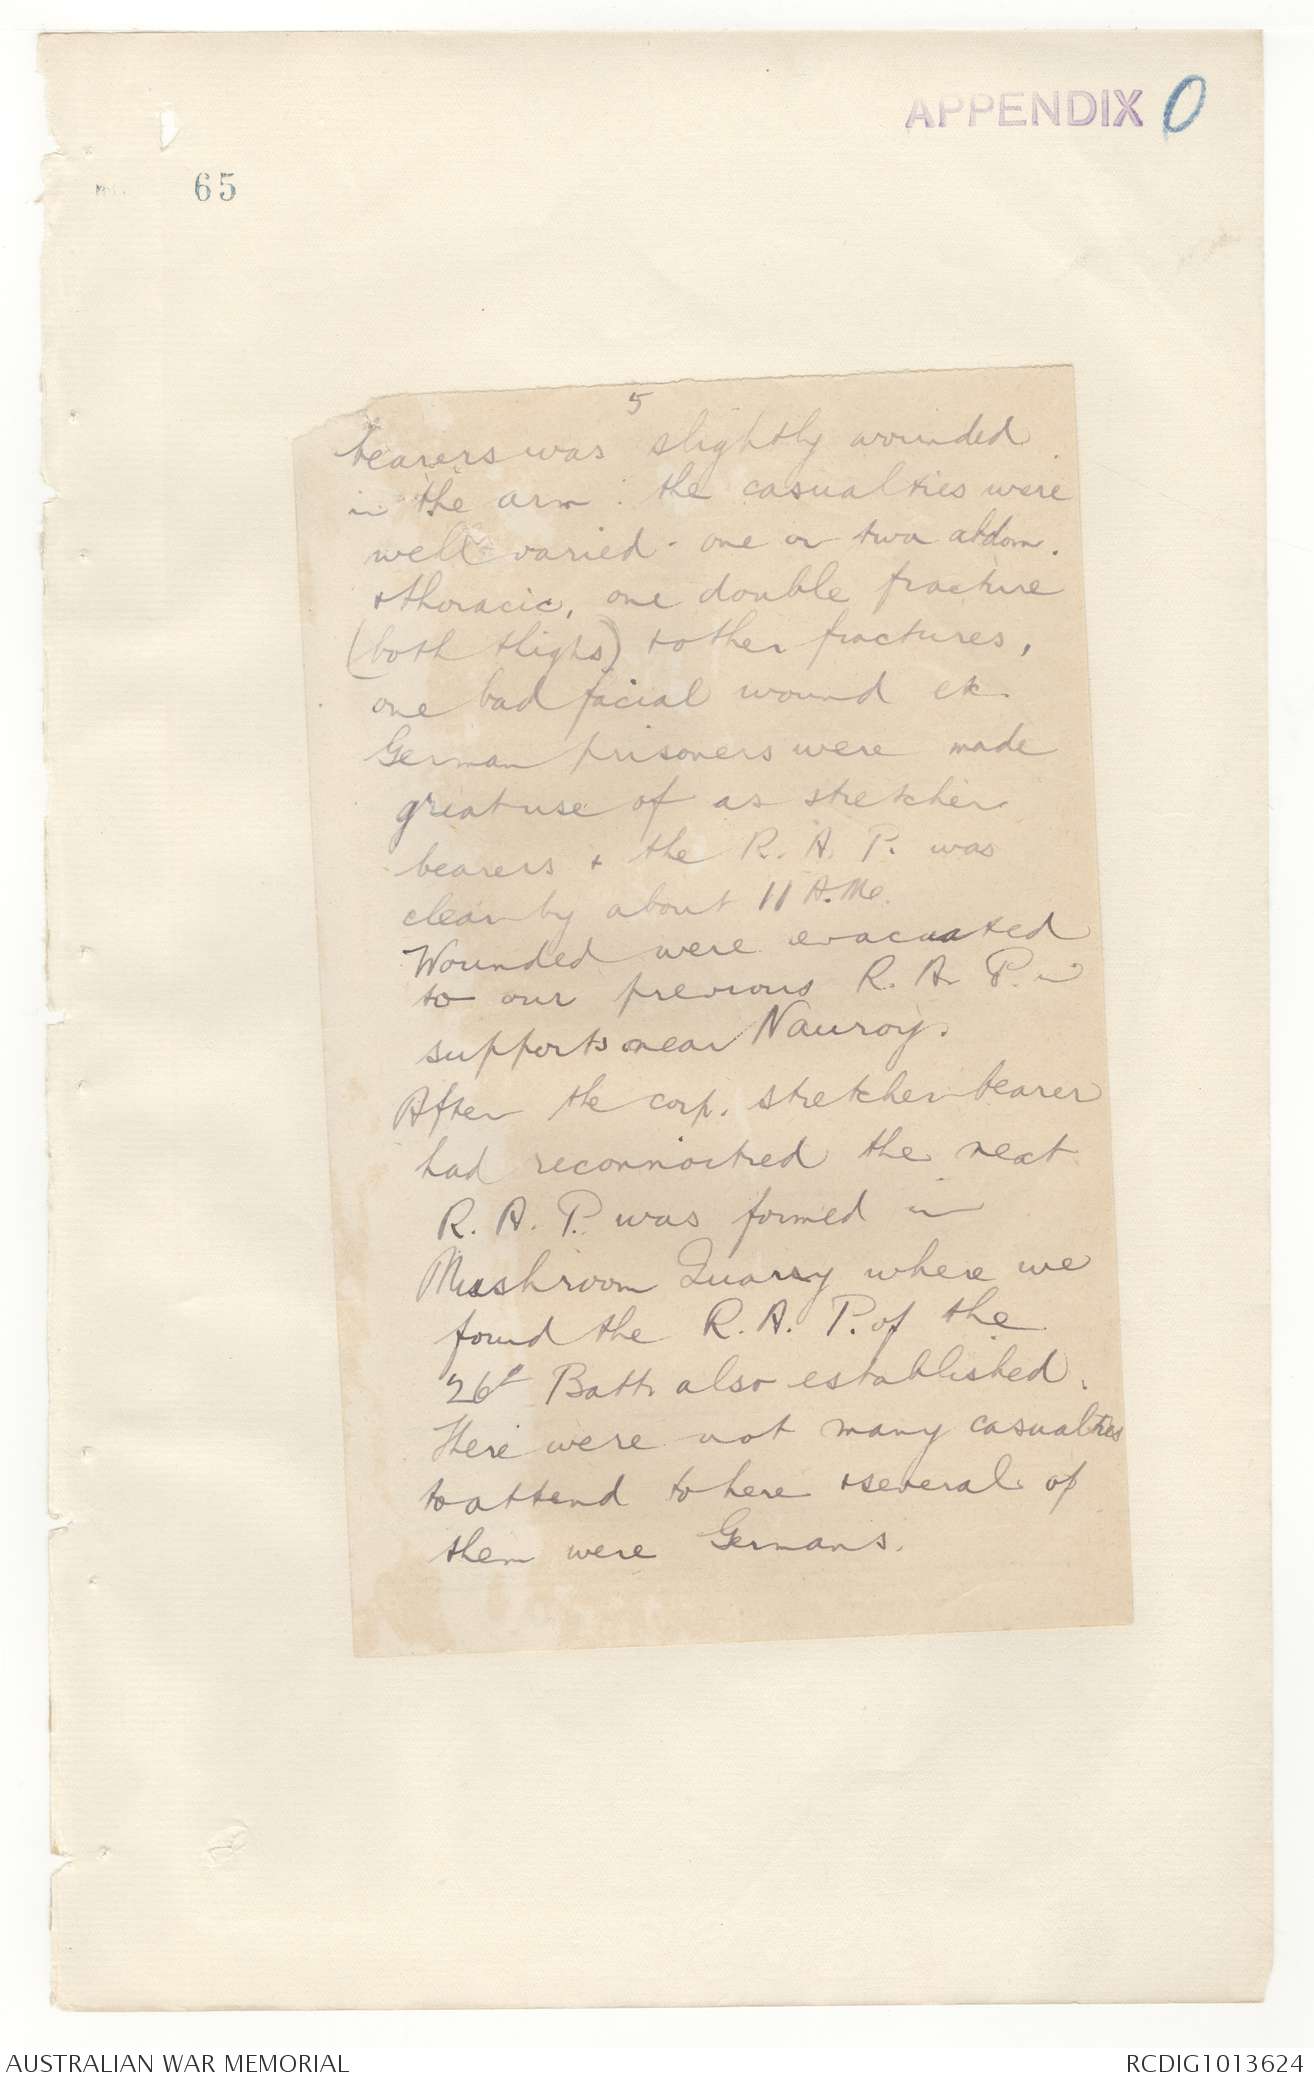 APPENDIX O
65
5
bearers was slightly wounded
in the arm. the casualties were
well varied - one or two abdom.
+ thoracic, one double fracture
(both thighs) + other fractures,
one bad facial wound etc.
German prisoners were made
great use of as stretcher
bearers + the R. A. P. was
clear by about 11 A.M.
Wounded were evacuated
to our previous R. A. P. in
supports near Nauroy.
After the corp. stretcher bearer
had reconnoitred the next
R. A. P. was formed in
Mushroom Quarry where we
found the R. A. P. of the
26th Batt. also established.
There were not many casualties
to attend to here + several of
them were Germans.
AUSTRALIAN WAR MEMORIAL
RCDIG1013624